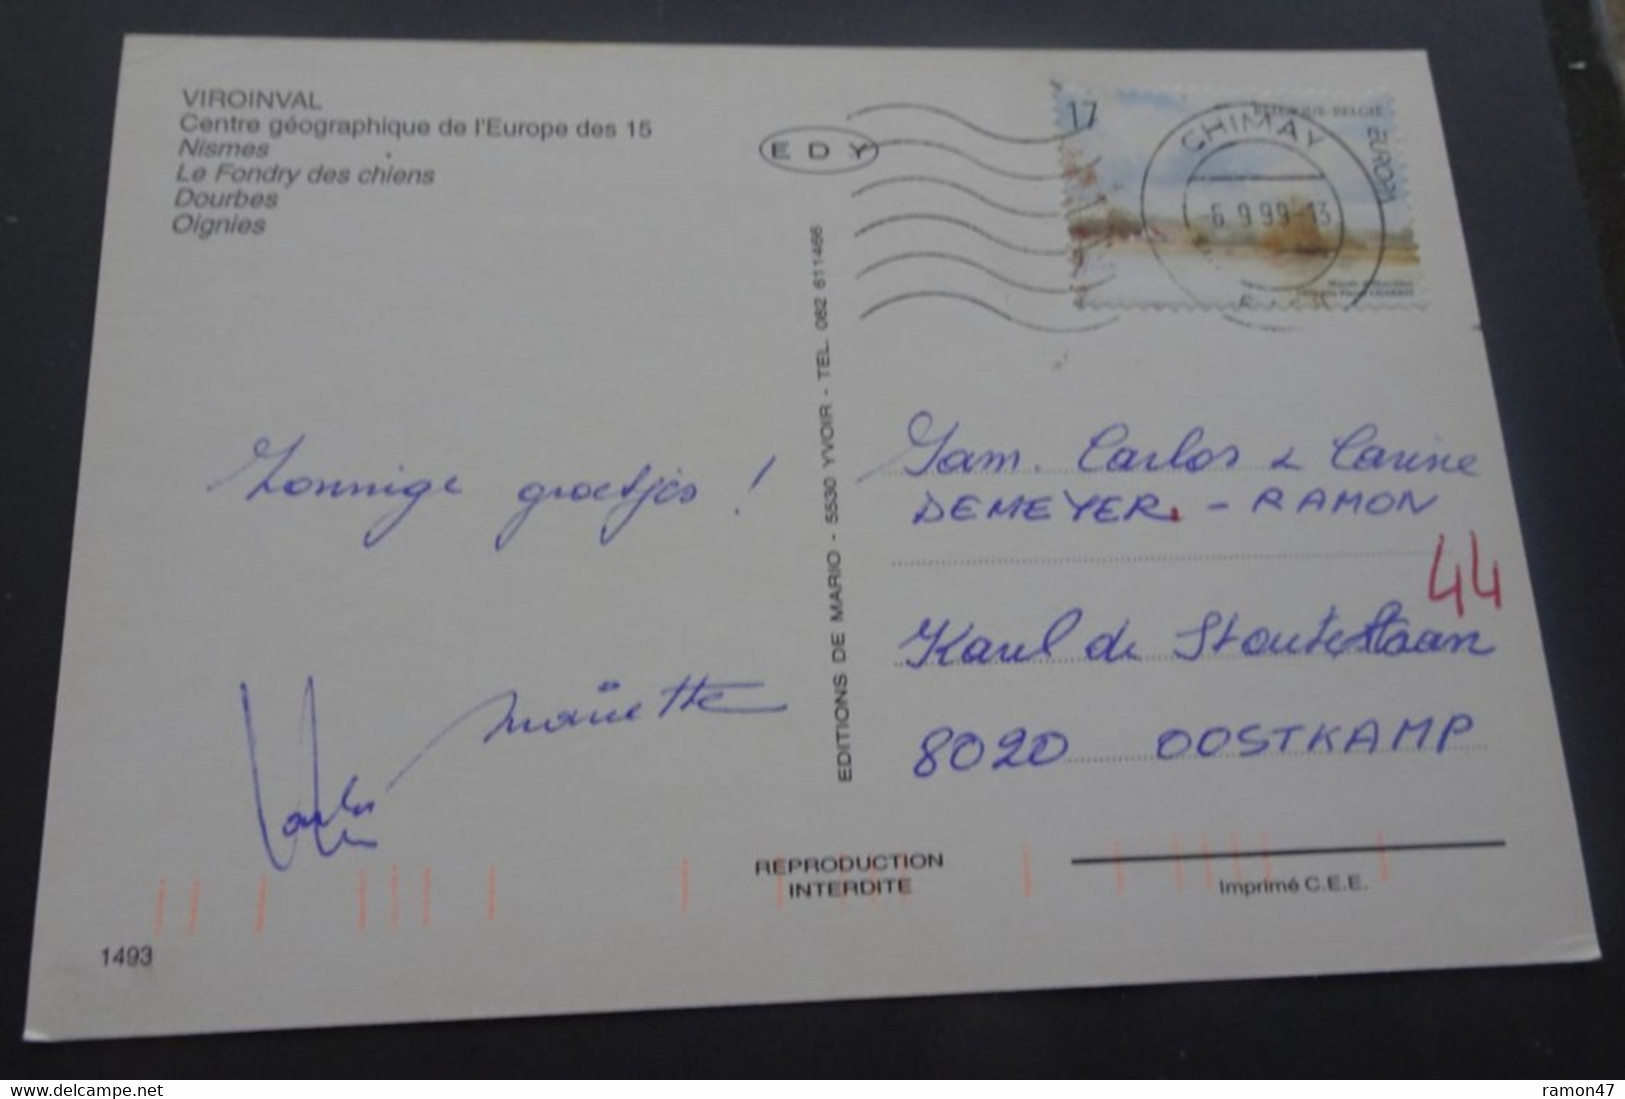 VIROINVAL
Centre géographique de l'Europe des 15
Nismes
Le Fondry des chiens
Dourbes
Oignies
E D Y
17
EUROPA
CHIMAY
6 9 99-13
EDITIONS DE MARIO - 5530 YVOIR - TEL. 082 611466
Zonnige groetjes !
Mariette
Fam. Carlos & Carine
DEMEYER - RAMON
44
Karel de Stoutelaan
8020 OOSTKAMP
REPRODUCTION
INTERDITE
Imprimé C.E.E.
1493
www.delcampe.net
ramon47